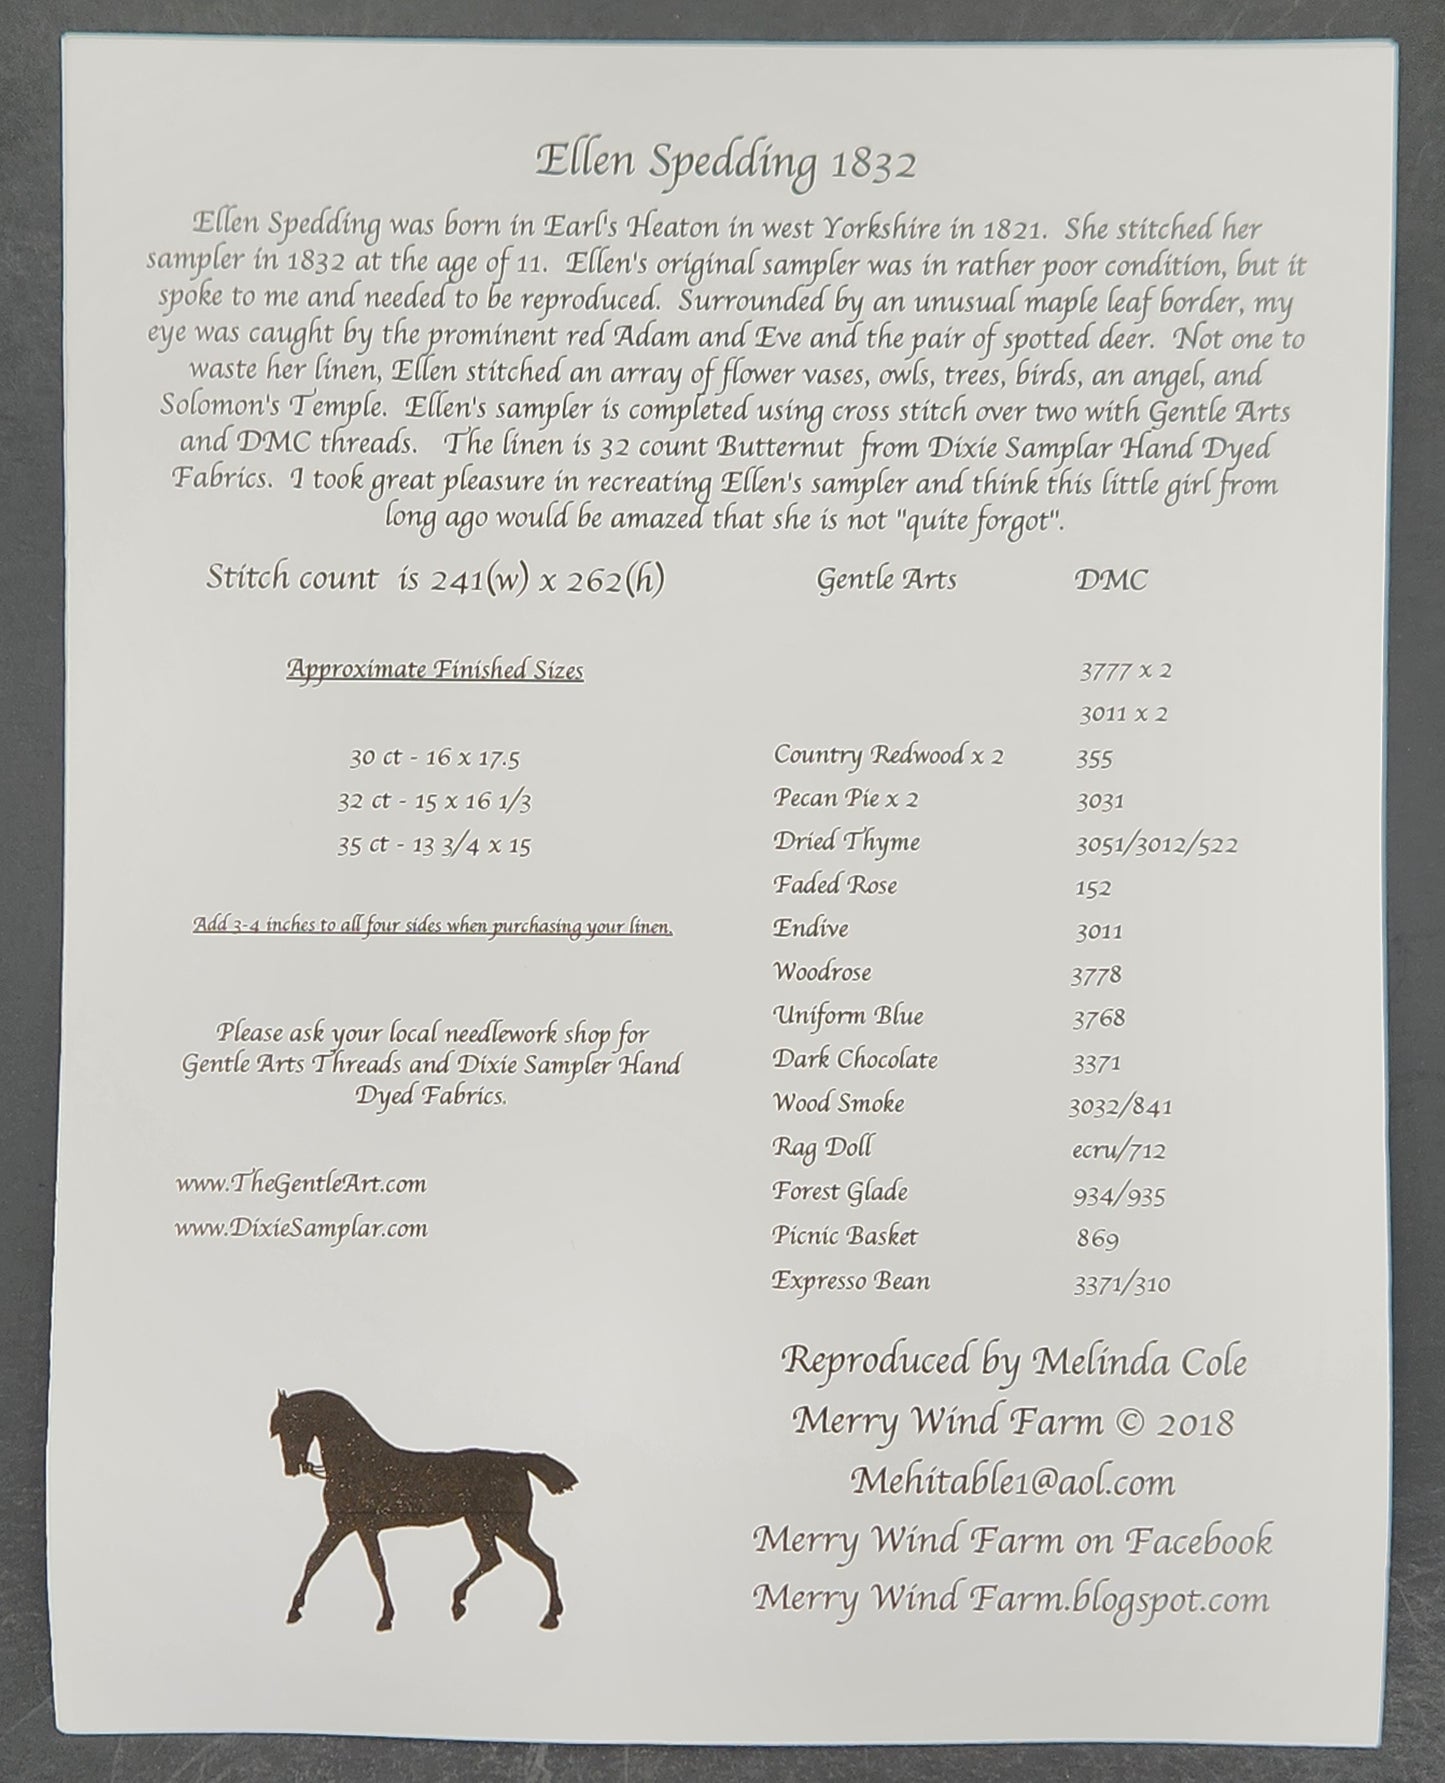 Ellen Spedding 1832
Ellen Spedding was born in Earl's Heaton in west Yorkshire in 1821. She stitched her
sampler in 1832 at the age of 11. Ellen's original sampler was in rather poor condition, but it
spoke to me and needed to be reproduced. Surrounded by an unusual maple leaf border, my
eye was caught by the prominent red Adam and Eve and the pair of spotted deer. Not one to
waste her linen, Ellen stitched an array of flower vases, owls, trees, birds, an angel, and
Solomon's Temple. Ellen's sampler is completed using cross stitch over two with Gentle Arts
and DMC threads. The linen is 32 count Butternut from Dixie Samplar Hand Dyed
Fabrics. I took great pleasure in recreating Ellen's sampler and think this little girl from
long ago would be amazed that she is not "quite forgot".
Stitch count is 241(w) x 262(h)
Approximate Finished Sizes
30 ct - 16 x 17.5
32 ct - 15 x 16 1/3
35 ct - 13 3/4 x 15
Add 3-4 inches to all four sides when purchasing your linen.
Please ask your local needlework shop for
Gentle Arts Threads and Dixie Sampler Hand
Dyed Fabrics.
www.TheGentleArt.com
www.DixieSamplar.com
Gentle Arts DMC
3777 x 2
3011 x 2
Country Redwood x 2 355
Pecan Pie x 2 3031
Dried Thyme 3051/3012/522
Faded Rose 152
Endive 3011
Woodrose 3778
Uniform Blue 3768
Dark Chocolate 3371
Wood Smoke 3032/841
Rag Doll ecru/712
Forest Glade 934/935
Picnic Basket 869
Expresso Bean 3371/310
Reproduced by Melinda Cole
Merry Wind Farm © 2018
Mehitable1@aol.com
Merry Wind Farm on Facebook
Merry Wind Farm.blogspot.com